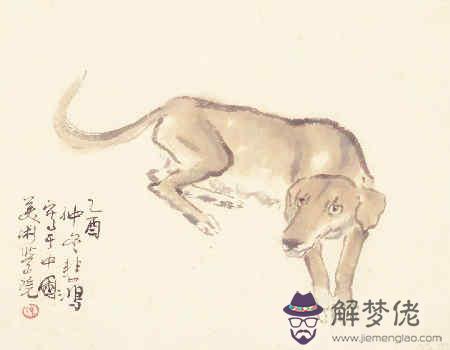 乙酉
仲冬悲鴻
寫于中國
美術學院
解梦佬
www.jiemenglao.com